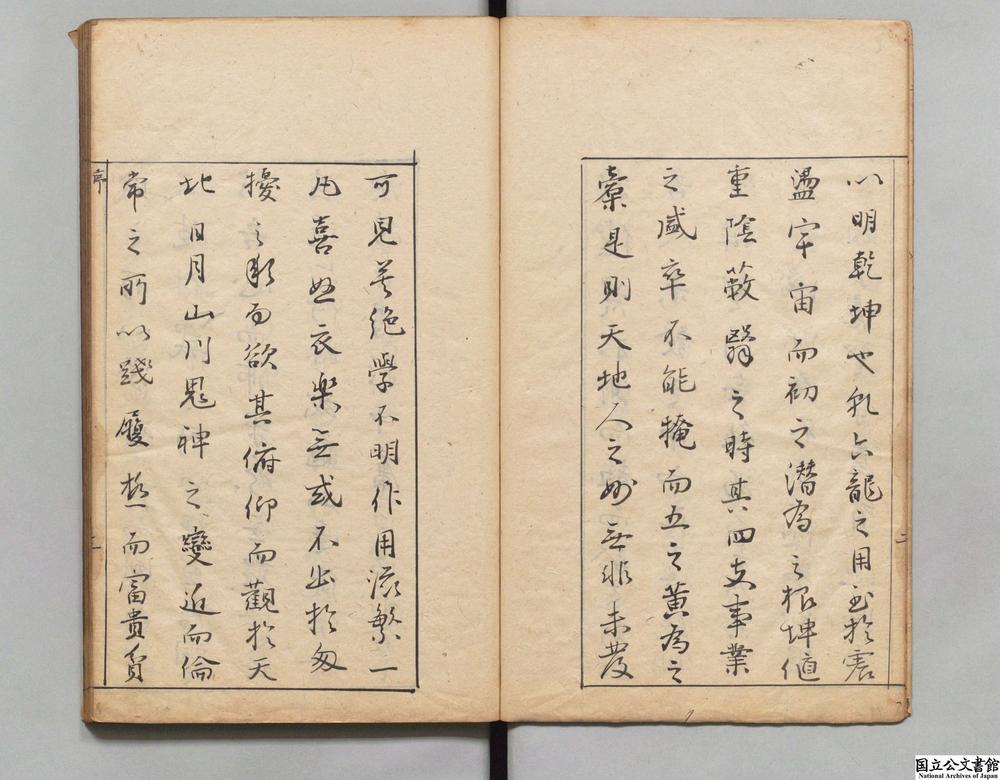 以明乾坤也乾六龍之用至於震
盪宇宙而初之潛為之根坤値
重陰蔽翳之時其四支事業
之盛卒不能掩而五之黄為之
稾是則天地人之妙無非未發
二
可見若絶學不明作用滋繁一
凡喜怒哀樂無或不出於匆
擾之私而欲其俯仰而觀於天
地日月山川鬼神之變近而倫
常之所以踐履於而富貴貧
序
二
国立公文書館
National Archives of Japan